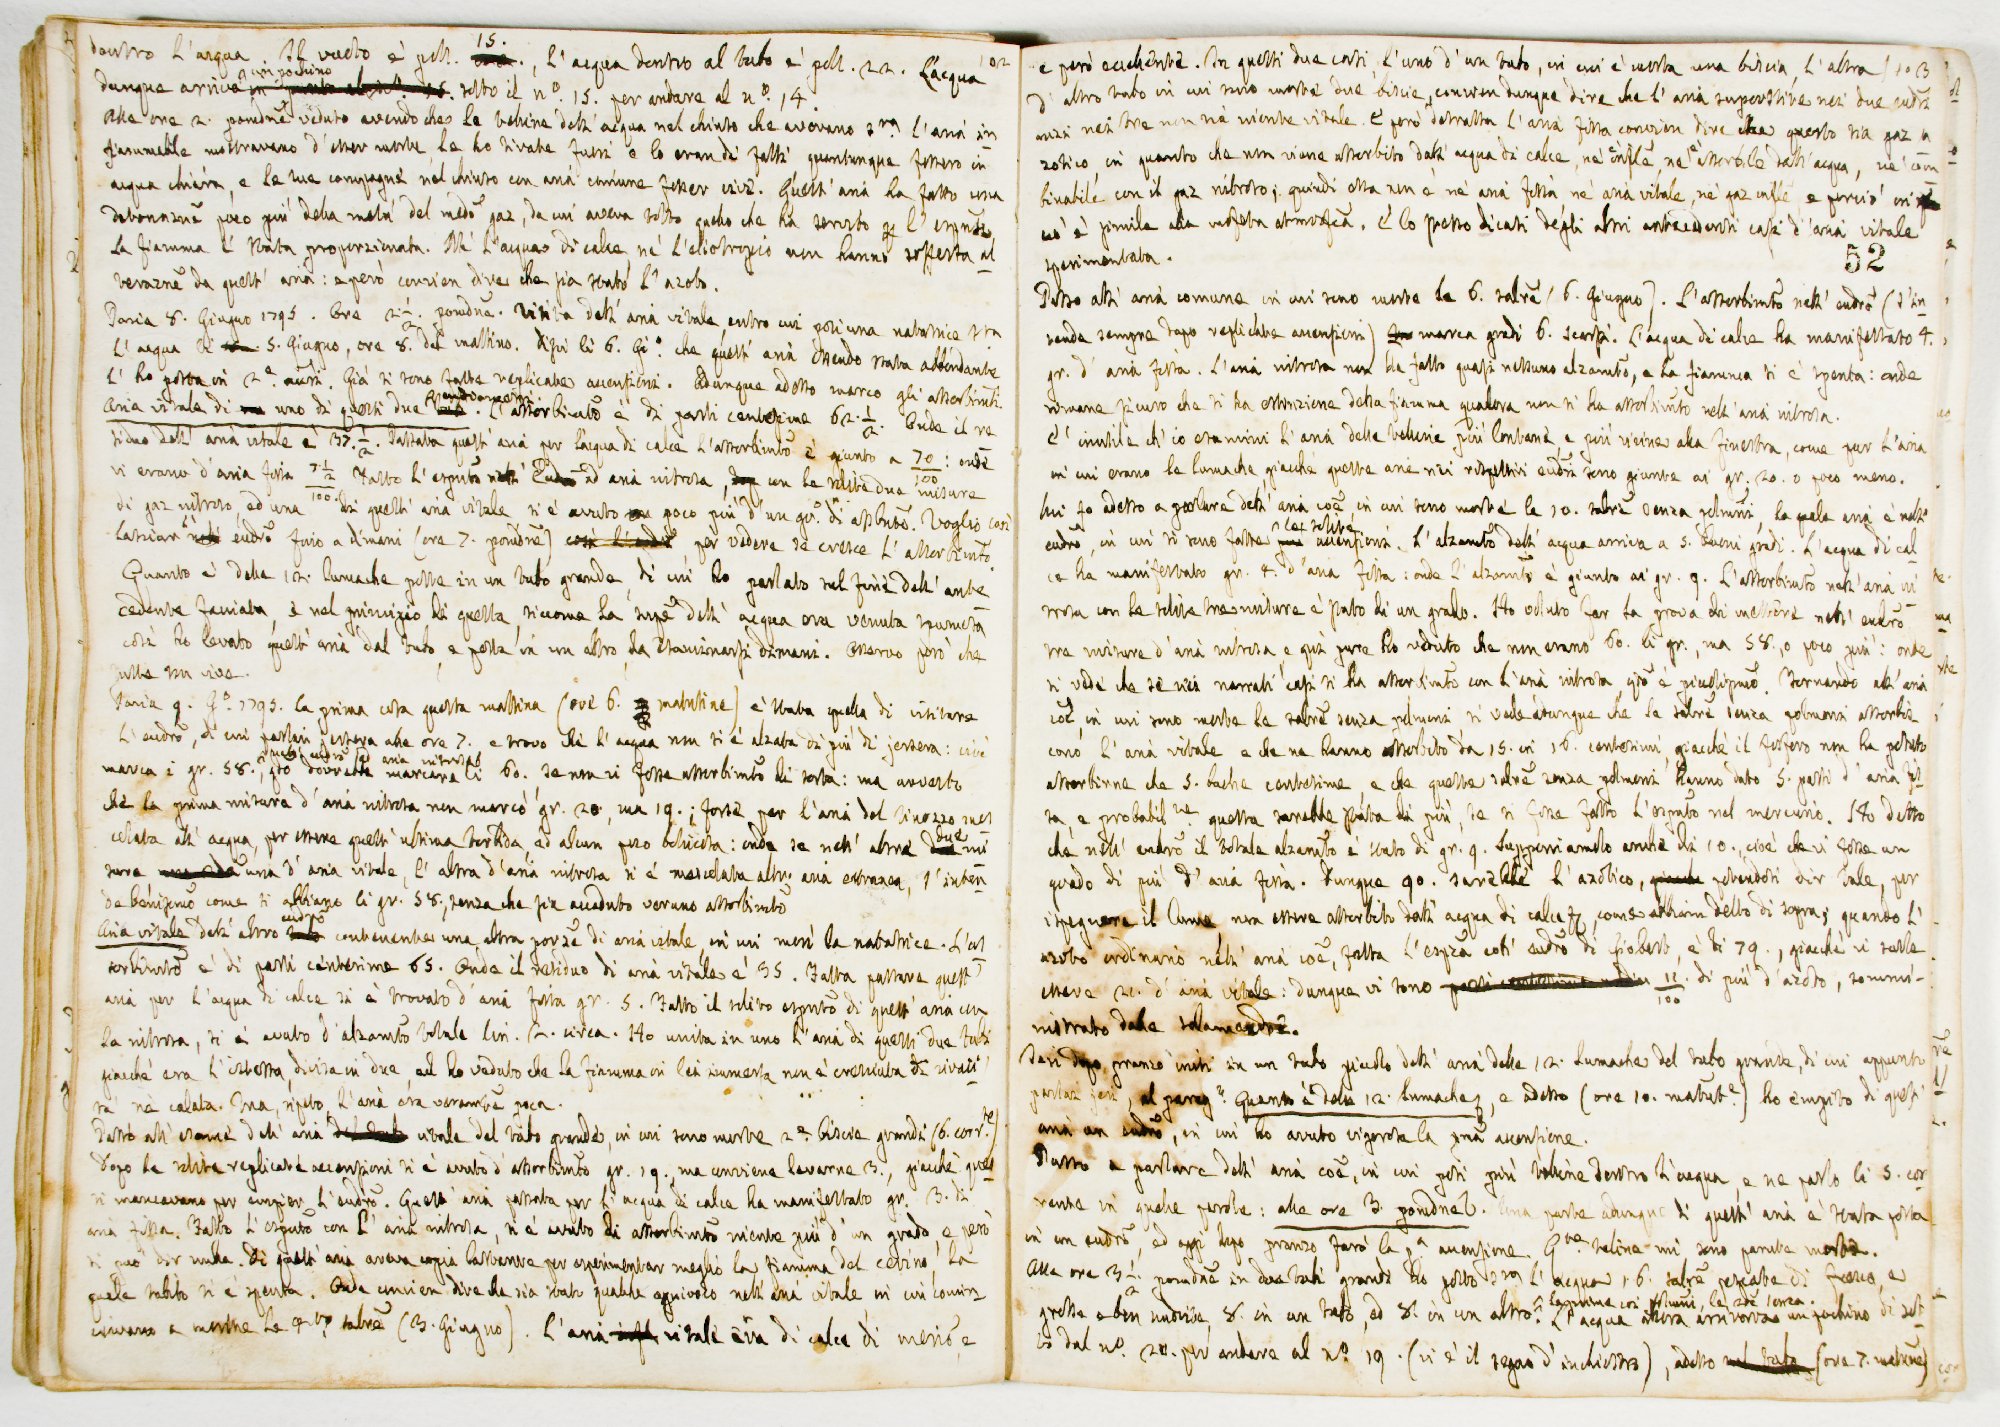 dentro l'acqua. Il vuoto è poll. 15., l'acqua dentro al tubo è poll. 22. L'acqua
dunque arriva un pochino sotto il n.º 15. per andare al n.º 14.
Alle ore 2. pomdne veduto avendo che le delle dell'acqua nel chiuso che avevano sra l'aria in
fiammabile mostravano d'esser morte, le ho tirate fuori e lo eran di fatti quantunque fossero in
acqua chiara, e le sue compagne nel chiuso con aria comune fosser vive. Quest'aria ha fatto una
detonazne poco più della metà del medo gaz, da cui aveva tolto quello che ha servito
La fiamma è stata proporzionata. Nè l'acqua di calce, nè l'eliotropio non hanno sofferta al
terazne da quest'aria: e però convien dire che sia stato l'azoto.
Pavia 8. Giugno 1795. Ore 2 1/2. pomdne. Visita dell'aria vitale, entro cui posi una natatrice sra
l'acqua li 5. Giugno, ore 8. del mattino. Dissi li 6. Gio. che quest'aria essendo stata abbondante
l'ho posta in 2e. Già si sono fatte replicate accensioni. Adunque adesso marco gli assorbimti.
Aria vitale di uno di questi due eudiometri. L'assorbimto è di parti centesime 62. 1/2. Onde il re
siduo dell'aria vitale è 37. 1/2. Passata quest'aria per l'acqua di calce l'assorbimto è giunto a 70/100: onde
vi erano d'aria fissa 7 1/2/100. Fatto l'esputo nell'Eudro ad aria nitrosa, con le solite due misure
di gaz nitroso, ed una di quest'aria vitale si è avuto poco più d'un go. di assbto. Voglio così
lasciar l'eudro fino a dimani (ore 7. pomdne) per vedere se cresce l'assorbimto.
Quanto è delle 12. lumache poste in un tubo grande, di cui ho parlato sul fine dell'ante
cedente facciata, e nel principio di questa, siccome la supe dell'acqua era venuta spumosa
così ho levato quest'aria dal tubo, e posta in un altro, da esaminarsi dimani. Osservo però che
tutte son vive.
Pavia 9. Go. 1795. La prima cosa questa mattina (ore 6. matutine) è stata quella di visitare
l'eudro, di cui parlai jersera alle ore 7., e trovo che l'acqua non si è alzata di più di jersera: cioè
marca i gr. 58., qto dovrebbe marcare li 60. se non vi fosse assorbimto di sorta: ma avverto
che la prima misura d'aria nitrosa non marcò gr. 20, ma 19.; forse per l'aria del tinozzo mes
colata all'acqua, per essere quest'ultima torbida, ed alcun poco bollicosa: onde se nell'altre due mi
sure una d'aria vitale, l'altra d'aria nitrosa si è mescolata altra aria estranea, s'inten
de benissimo come si abbiano li gr. 58., senza che sia accaduto veruno assorbimto
Aria vitale dell'altro eudro contenente una altra porze di aria vitale in cui morì la natatrice. L'as
sorbimto è di parti centesime 65. Onde il residuo di aria vitale è 35. Fatta passare quest'
aria per l'acqua di calce si è trovato d'aria fissa gr. 5. Fatto il solito esputo di quest'aria con
la nitrosa, si è avuto d'alzamto totale lin. 2. circa. Ho unita in uno l'aria di questi due tubi
giacchè era l'istessa, divisa in due, ed ho veduto che la fiamma in lei immersa non è cresciuta di vivaci
tà nè calata. Ma, ripeto, l'aria era veramte poca.
Passo all'esame dell'aria vitale del tubo grande, in cui sono morte 2e. biscie grandi (6. corre.)
Dopo le solite replicate accensioni si è avuto d'assorbimto gr. 19., ma conviene levarne 3., giacchè questi
vi mancavano per empier l'eudro. Quest'aria passata per l'acqua di calce ha manifestato gr. 3. di
aria fissa. Fatto l'esputo con l'aria nitrosa, si è avuto di assorbimto niente più d'un grado, e però
si può dir nulla. Di quest'aria aveva copia bastante per esperimentar meglio la fiamma del cerino, la
quale subito si è spenta. Onde convien dire che sia stato qualche equivoco nell'aria vitale in cui comin
ciavano a morire le 4tro salre (3. Giugno). L'aria vitale era di calce di mercurio, e
e però eccellente. In questi due casti, l'uno d'un tubo, in cui è morta una biscia, l'altra 103
d'altro tubo in cui sono morte due biscie, convien dunque dire che l'aria superstite nei due eudri
anzi nei tre non sia niente vitale. E però detratta l'aria fissa convien dire che questo sia gaz a
zotico, in quanto che non viene assorbito dall'acqua di calce, nè infle, nè assorbile dall'acqua, nè com
binabile con il gaz nitroso; quindi essa non è nè aria fissa, nè aria vitale, nè gaz infle e perciò
è simile alla mofeta atmosfca. E lo stesso dicasi degli altri antecedenti casi d'aria vitale
sperimentata.
52
Passo all'aria comune in cui sono morte le 6. salre (6. Giugno). L'assorbimto nell'eudro (s'in
tende sempre dopo replicate accensioni) marca gradi 6. scarsi. L'acqua di calce ha manifestato 4.
gr. d'aria fissa. L'aria nitrosa non ha fatto quasi nessuno alzamto, e la fiamma si è spenta: onde
rimane sicuro che si ha estinzione della fiamma qualora non si ha assorbimto nell'aria nitrosa.
È inutile ch'io esamini l'aria delle più lontane, e più vicine alla finestra, come pur l'aria
in cui erano le lumache, giacchè queste arie nei rispettivi eudri sono giunte ai gr. 20. o poco meno.
adesso a parlare dell'aria coe, in cui sono morte le 10. salre senza polmoni, la quale aria è nell'
eudro, in cui si sono fatte le solite accensioni. L'alzamto dell'acqua arriva a 5. buoni gradi. L'acqua di cal
ce ha manifestato gr. 4. d'aria fissa: onde l'alzamto è giunto ai gr. 9. L'assorbimto nell'aria ni
trosa con le solite tre misure è stato di un grado. Ho voluto far la prova di mettere nell'eudro
tre misure d'aria nitrosa e qui pure ho veduto che non erano 60. li gr., ma 58., o poco più: onde
si vede che se nei narrati casi si ha assorbimto con l'aria nitrosa, qto è piccolissmo. Tornando all'aria
coe, in cui sono morte le salre senza polmoni si vede dunque che le salre senza polmoni assorbis
cono l'aria vitale e che ne hanno assorbito da 15. in 16. centesimi, giacchè il fosforo non ha potuto
assorbirne che 5. sole centesime, e che queste salre senza polmoni hanno dato 5. parti d'aria fis
sa, e probabilme questa sarebbe stata di più, se si fosse fatto l'esputo nel mercurio. Ho detto
che nell'eudro il totale alzamto è stato di gr. 9. Supponiamolo anche di 10., cioè che vi fosse un
grado di più d'aria fissa. Dunque 90. sarebbe l'azotico, potendosi dir tale, per
ispegnere il lume, non essere assorbito dall'acqua di calce, come abbiam detto di sopra; quando l'
azoto ordinario nell'aria coe, fatta l'espza coll'eudro di Giobert, è di 79., giacchè vi suole
essere 21. d'aria vitale: dunque vi sono 11/100. di più d'azoto, sommi-
nistrato dalle salamandre.
Jeri dopo pranzo misi in un tubo piccolo dell'aria delle 12. lumache del tubo grande, di cui appunto
parlai jeri, al parago. Quanto è delle 12. lumache, e adesso (ore 10. matute) ho empito di quest'
aria un eudro, in cui ho avuto vigorosa la pma accensione.
Passo a parlare dell'aria coe, in cui posi più dentro l'acqua, e ne parlo li 5. cor
rente in quelle parole: alle ore 3. pomdne. Una parte adunque di quest'aria è stata posta
in un eudro, ed oggi dopo pranzo farò la pa accensione. mi sono parute morte.
Alle ore 3 1/2 pomdne in due tubi grandi ho posto sra l'acqua 16. salre pescate di fresco, e
grosse e ben nudrite, 8. in un tubo, ed 8. in un altro: le prime coi polmni, le 2de senza. L'acqua allora arrivava un pochino di sot
to dal n.º 20. per andare al n.º 19. (vi è il segno d'inchiostro), adesso (ore 7. matne)